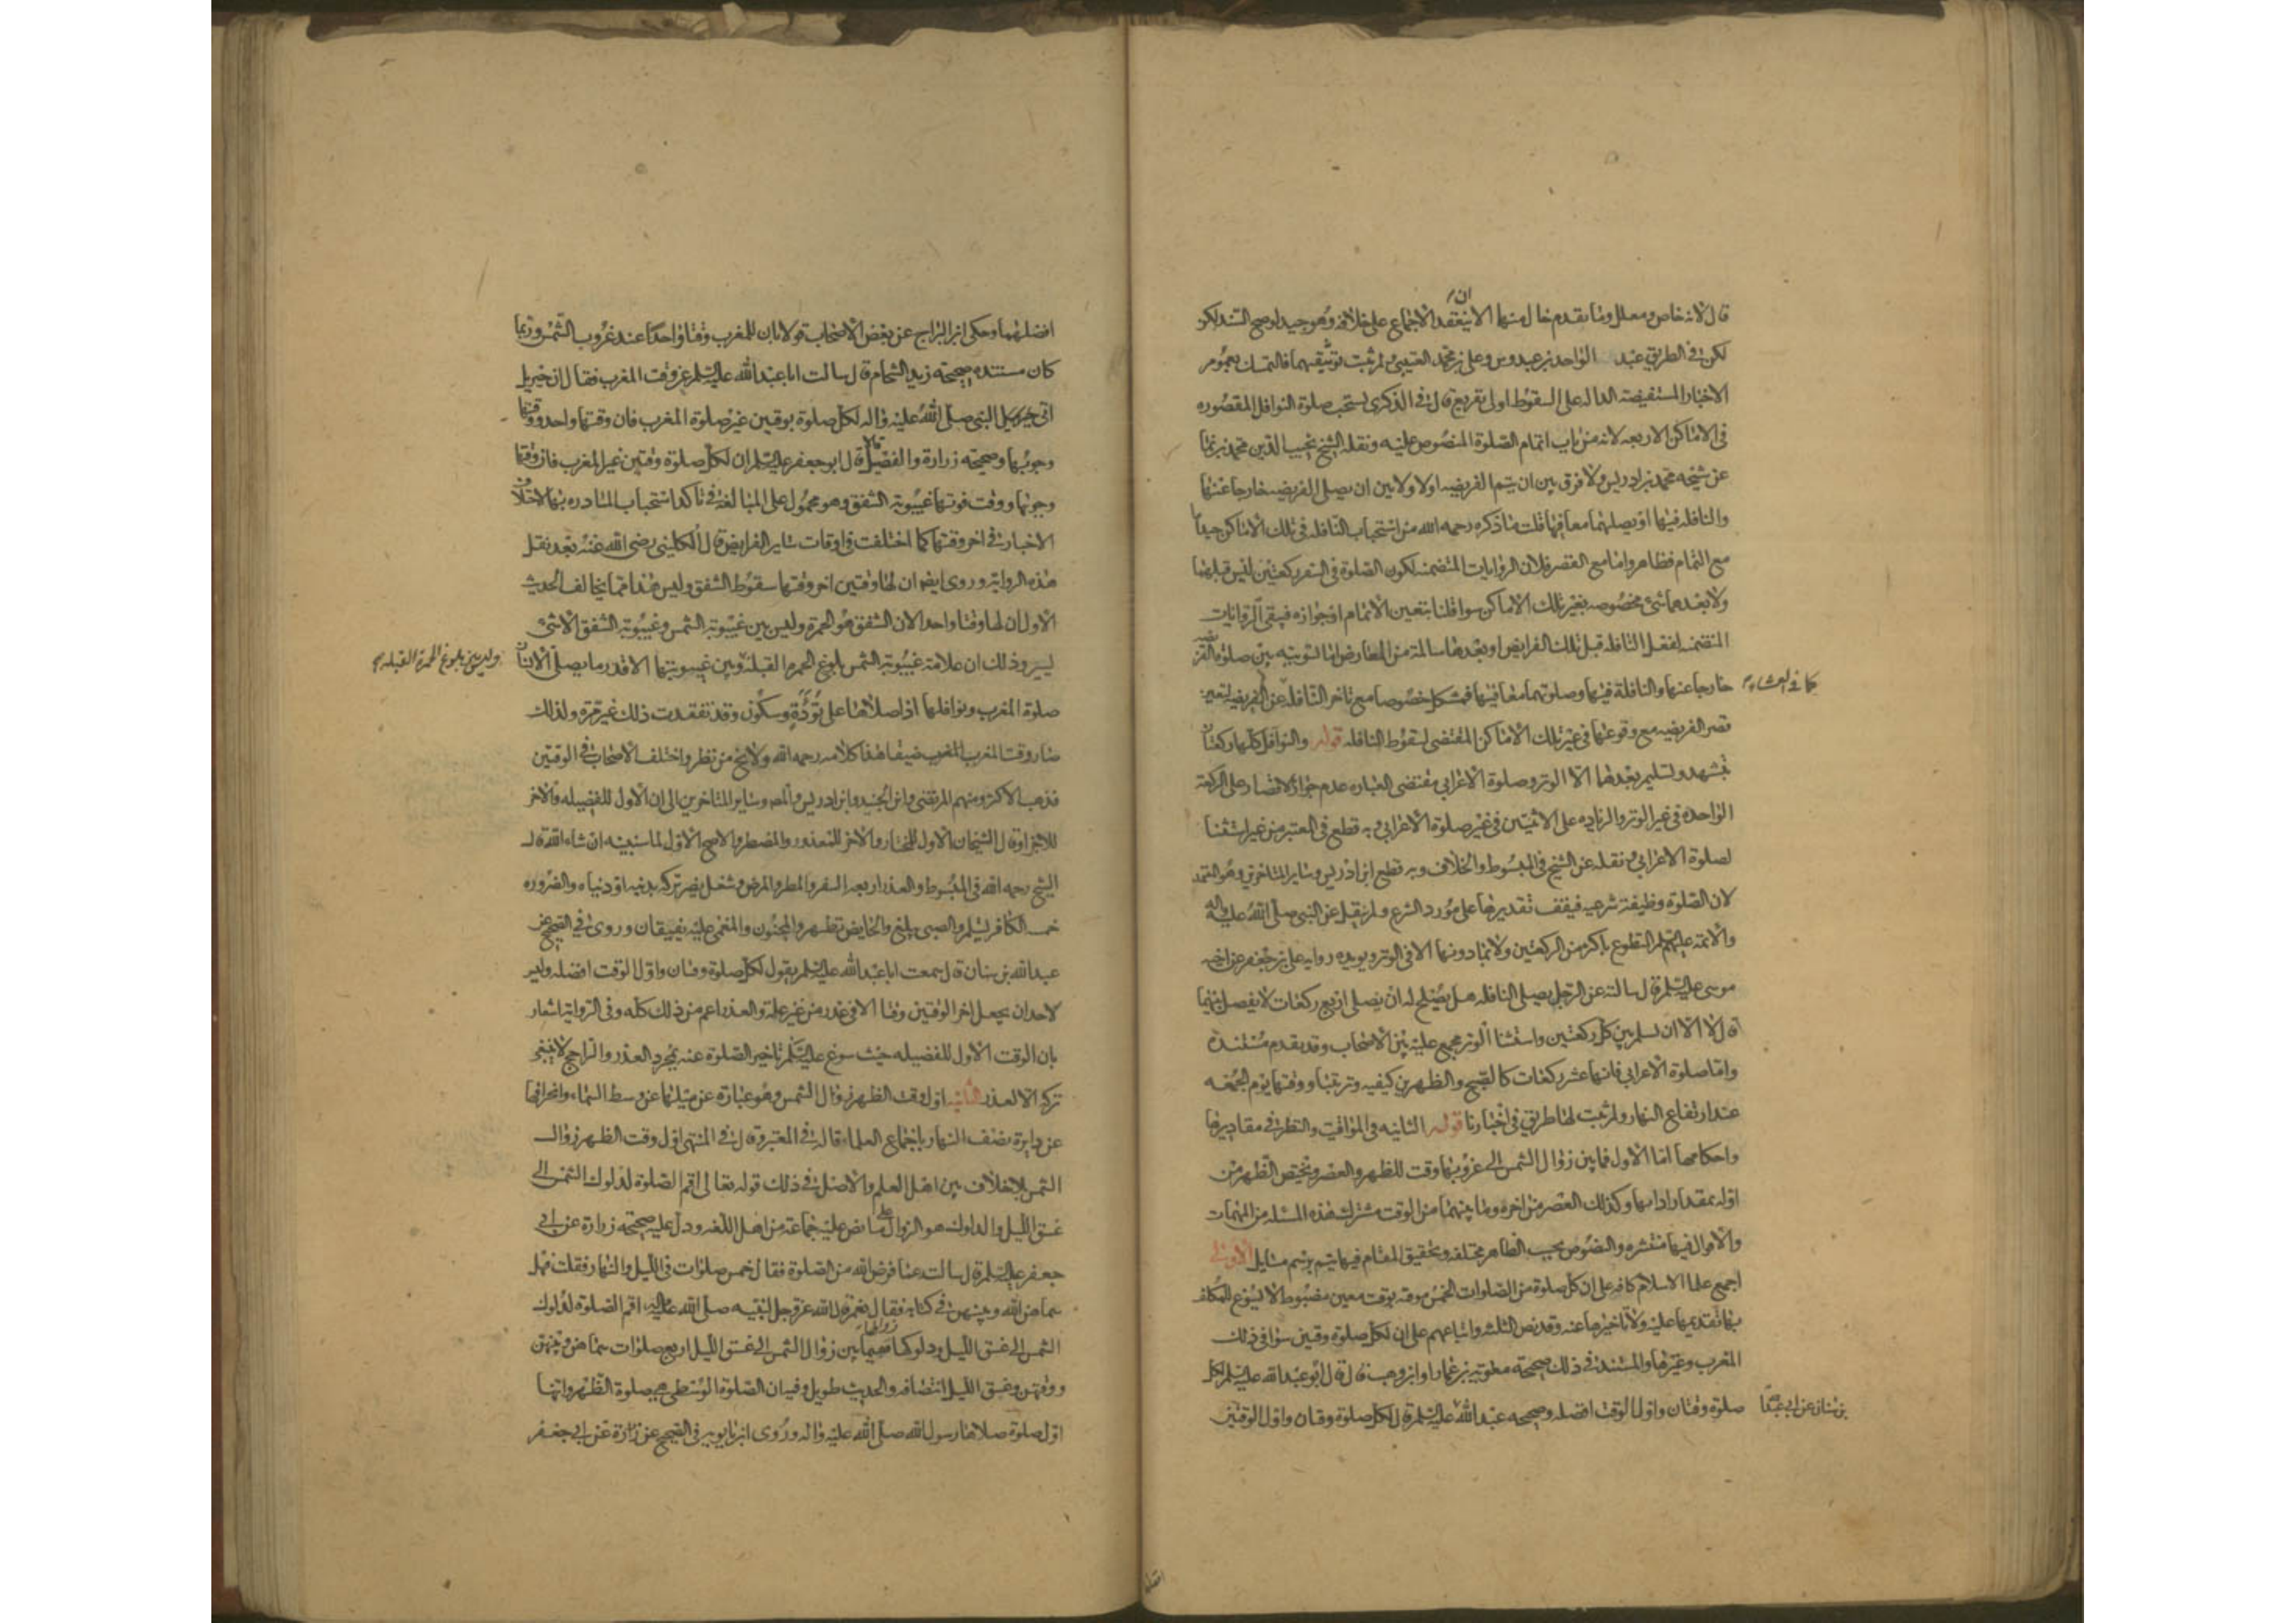 قال لانه خاص ومعلل وما تقدم خال منهما الا ان ينعقد الاجماع على خلافه وهو جيد لو صح السند لكن
لكن في الطريق عبد الواحد بن عبدوس وعلي بن محمد القتيبي ولم يثبت توثيقهما فالتمسك بعموم
الاخبار المستفيضه الداله على السقوط اولى تفريع قال في الذكرى يستحب صلوة النوافل المقصوره
في الاماكن الاربعه لانه من باب اتمام الصلوة المنصوص عليه ونقله الشيخ نجيب الدين محمد بن نما
عن شيخه محمد بن ادريس ولا فرق بين ان يتم الفريضه اولا ولا بين ان يصلي الفريضه خارجا عنها
والنافله فيها او يصليهما معا فيها قلت ما ذكره رحمه الله من استحباب النافله في تلك الاماكن جيد
مع التمام فظاهر واما مع القصر فلان الروايات المتضمنه لكون الصلوة في السفر ركعتين ليس قبلهما
ولا بعدهما شئ مخصوصه بغير تلك الاماكن سوا قلنا بتعين الاتمام او جوازه فيبقى الروايات
المتضمنه لفعل النافله قبل تلك الفرايض او بعدها سالمة من المعارض اما التسويه بين صلوة الفريضه
خارجا عنها والنافلة فيها وصلوتهما معا فيها فمشكل خصوصا مع تاخر النافله عن الفريضه لتعين
كما في العشاء
قصر الفريضه مع وقوعها في غير تلك الاماكن المقتضى لسقوط النافله قوله والنوافل كلها ركعتان
بتشهد وتسليم بعدهما الا الوتر وصلوة الاعرابي مقتضى العباره عدم جواز الاقتصار على الركعة
الواحده في غير الوتر والزياده على الاثنتين في غير صلوة الاعرابي وبه قطع في المعتبر من غير استثنا
لصلوة الاعرابي ونقله عن الشيخ في المبسوط والخلاف وبه قطع ابن ادريس وساير المتاخرين وهو المعتمد
لان الصلوة وظيفة شرعيه فيقف تقديرها على مورد الشرع ولم ينقل عن النبي صلى الله عليه واله
والائمة عليهم السلم التطوع باكثر من الركعتين ولا بما دونها الا في الوتر ويويده روايه علي بن جعفر عن اخيه
موسى عليه السلم قال سالته عن الرجل يصلي النافله هل يصلح له ان يصلي اربع ركعات لا يفصل بينهما
قال لا الا ان يسلم بين كل ركعتين واستثنا الوتر مجمع عليه بين الاصحاب وقد تقدم مستنده
واما صلوة الاعرابي فانها عشر ركعات كالصبح والظهرين كيفيه وترتيبا ووقتها يوم الجمعه
عند ارتفاع النهار ولم يثبت لها طريق في اخبارنا قوله الثانيه في المواقيت والنظر في مقاديرها
واحكامها اما الاول فما بين زوال الشمس الى غروبها وقت للظهر والعصر ويختص الظهر من
اوله بمقدار ادائها وكذلك العصر من اخره وما بينهما من الوقت مشترك هذه المسئله من المهمات
والاقوال فيها منتشره والنصوص بحسب الظاهر مختلفه وتحقيق المقام فيها يتم برسم مسايل الاولى
اجمع علما الاسلام كافه على ان كل صلوة من الصلوات الخمس موقته بوقت معين مضبوط لا يسوغ للمكلف
بها تقديمها عليه ولا تاخيرها عنه وقد نص الثلثه واتباعهم على ان لكل صلوة وقتين سوا في ذلك
المغرب وغيرها والمستند في ذلك صحيحة معوية بن عمار او ابن وهب قال قال ابو عبد الله عليه السلم لكل
صلوة وقتان واول الوقت افضله وصحيحه عبد الله عليه السلم قال لكل صلوة وقتان واول الوقتين
بن سنان عن ابي عبد
افضلهما وحكى ابن البراج عن بعض الاصحاب قولا بان للمغرب وقتا واحدا عند غروب الشمس وربما
كان مستنده صحيحة زيد الشحام قال سالت ابا عبد الله عليه السلم عن وقت المغرب فقال ان جبريل
اتى النبي صلى الله عليه واله لكل صلوة بوقتين غير صلوة المغرب فان وقتها واحد ووقتها
وجوبها وصحيحه زرارة والفضيل قالا قال ابو جعفر عليه السلم ان لكل صلوة وقتين غير المغرب فان وقتها
وجوبها ووقت فوتها غيبوبة الشفق وهو محمول على المبالغة في تاكد استحباب المبادره بها لاختلاف
الاخبار في اخر وقتها كما اختلفت في اوقات ساير الفرايض قال الكليني رضي الله عنه بعد نقل
هذه الرواية وروى ايضا ان لها وقتين اخر وقتها سقوط الشفق وليس هذا مما يخالف الحديث
الاول ان لها وقتا واحدا لان الشفق هو الحمرة وليس بين غيبوبة الشمس وغيبوبة الشفق الا شئ
يسير وذلك ان علامة غيبوبة الشمس بلوغ الحمرة القبلة وبين غيبوبتها الا قدر ما يصلي الانسان
وليس بين بلوغ الحمرة القبله
صلوة المغرب ونوافلها اذا صلاها على تؤدة وسكون وقد تفقدت ذلك غير مرة ولذلك
صار وقت المغرب ضيقا هذا كلامه رحمه الله ولا يخ من نظر واختلف الاصحاب في الوقتين
فذهب الاكثر ومنهم المرتضى وابن الجنيد وابن ادريس والمص وساير المتاخرين الى ان الاول للفضيله والاخر
للاجزا وقال الشيخان الاول للمختار والاخر للمعذور والمضطر والاصح الاول لما سنبينه ان شاء الله قال
الشيخ رحمه الله في المبسوط والعذر اربعه السفر والمطر والمرض وشغل يضر تركه بدينه او دنياه والضروره
خمسه الكافر يسلم والصبي يبلغ والحايض تطهر والمجنون والمغمى عليه يفيقان وروى في الصحيح عن
عبد الله بن سنان قال سمعت ابا عبد الله عليه السلم يقول لكل صلوة وقتان واول الوقت افضله وليس
لاحد ان يجعل اخر الوقتين وقتا الا في عذر من غير علة والعذر اعم من ذلك كله وفي الرواية اشعار
بان الوقت الاول للفضيله حيث سوغ عليه السلم تاخير الصلوة عنه بمجرد العذر والراجح لا ينبغي
تركه الا لعذر الثانيه اول وقت الظهر زوال الشمس وهو عبارة عن ميلها عن وسط السماء وانحرافها
عن دايرة نصف النهار باجماع العلماء قاله في المعتبر وقال في المنتهى اول وقت الظهر زوال
الشمس بلا خلاف بين اهل العلم والاصل في ذلك قوله تعالى اقم الصلوة لدلوك الشمس الى
غسق الليل والدلوك هو الزوال على ما نص عليه جماعة من اهل اللغه ودل عليه صحيحه زرارة عن ابي
جعفر عليه السلم قال سالته عما فرض الله من الصلوة فقال خمس صلوات في الليل والنهار فقلت فهل
سماهن الله وبينهن في كتابه فقال نعم قال الله عز وجل لنبيه صلى الله عليه واله اقم الصلوة لدلوك
الشمس الى غسق الليل ودلوكها زوالها ففيما بين زوال الشمس الى غسق الليل اربع صلوات سماهن وبينهن
ووقتهن وغسق الليل انتصافه والحديث طويل وفيه ان الصلوة الوسطى هي صلوة الظهر وانها
اول صلوة صلاها رسول الله صلى الله عليه واله وروى ابن بابويه في الصحيح عن زرارة عن ابي جعفر